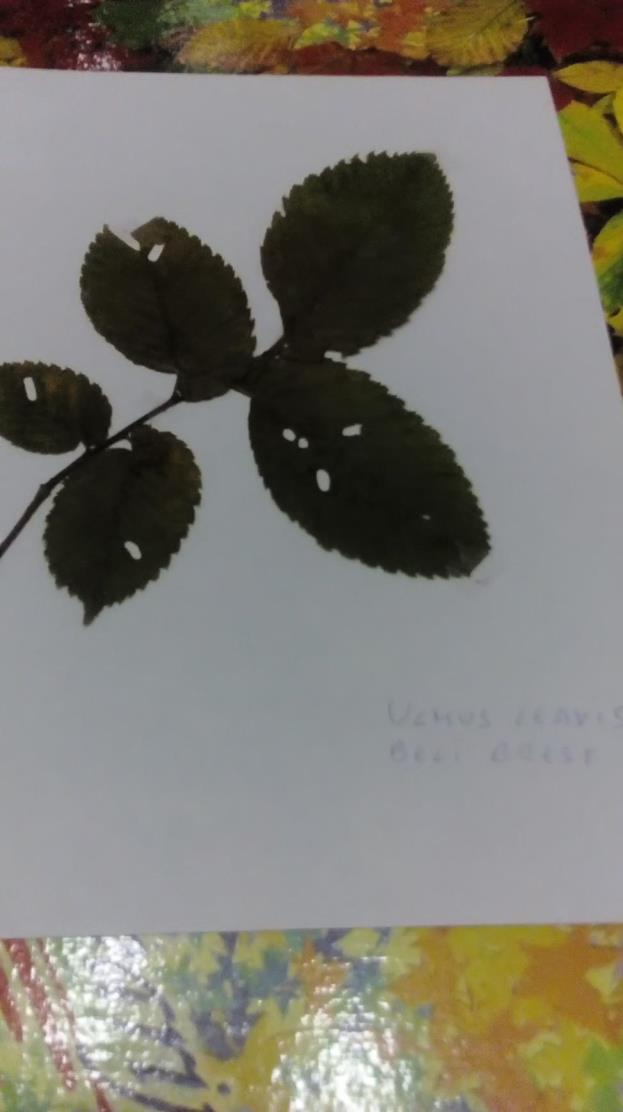 ULMUS LEAVIS
BELI BREST